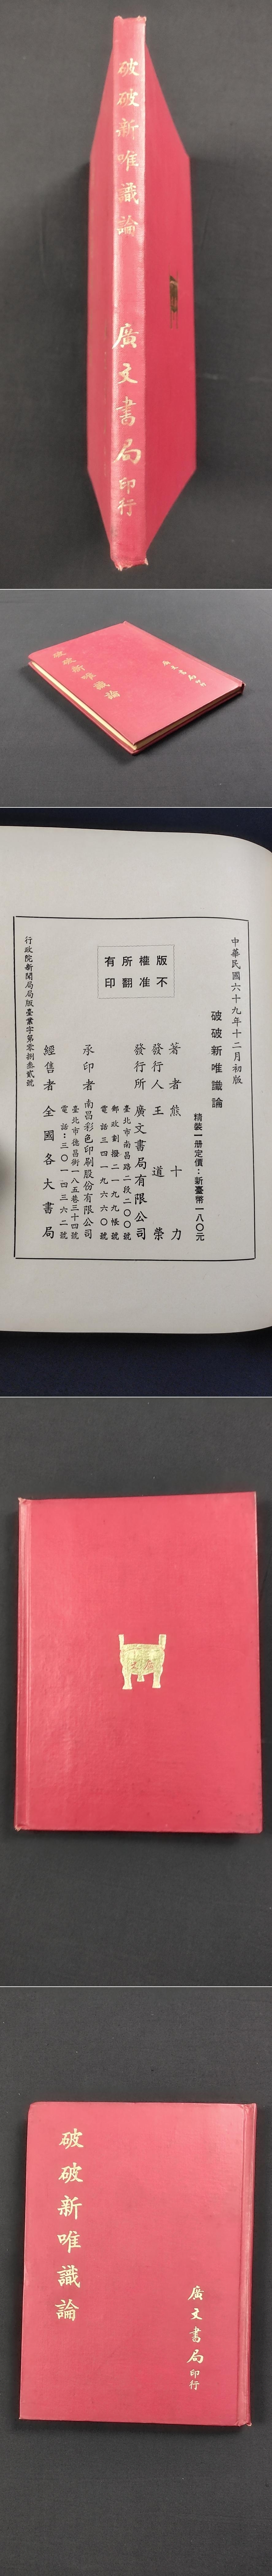 破破新唯識論
廣文書局印行
破破新唯識論
廣文書局印行
中華民國六十九年十二月初版
破破新唯識論
精裝一册定價：新臺幣一八〇元
版權所有
不准翻印
著者熊十力
發行人王道榮
發行所廣文書局有限公司
臺北市南昌路二段二〇〇號
郵政劃撥二一九九帳號
電話三四一九六六〇號
承印者南昌彩色印刷股份有限公司
臺北市德昌街一八五巷三十四號
電話：三〇一四三六二號
經售者全國各大書局
行政院新聞局局版臺業字第零捌叁貳號
破破新唯識論
廣文書局印行